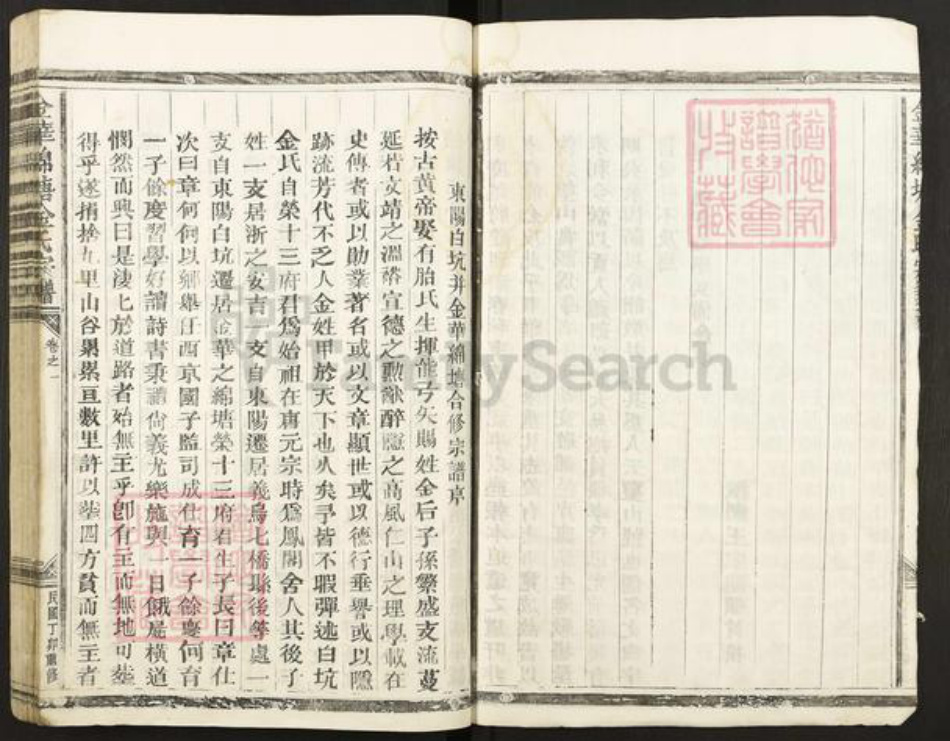 東陽白坑并金華綿塘合修宗譜序
按古黃帝娶有胎氏生揮能弓矢賜姓金后子孫繁盛支流蔓
延若文靖之溫裕宣德之勲猷醉隱之高風仁山之理學載在
史傳者或以勛業著名或以文章顯世或以德行垂譽或以隱
跡流芳代不乏人金姓甲於天下也久矣予皆不暇彈述白坑
金氏自榮十三府君爲始祖在唐元宗時爲鳳閣舍人其後子
姓一支居浙之安吉一支自東陽遷居義烏七橋縣後等處一
支自東陽白坑遷居金華之綿塘榮十三府君生子長曰章仕
次曰章何何以鄉舉任西京國子監司成仕育一子餘慶何育
一子餘慶習學好讀詩書秉禮尙義尤樂施與一日餓屍橫道
憫然而興曰是淒七於道路者始無主乎卽有主而無地可塟
得乎遂捐捨九里山谷纍纍亘數里許以塟四方貧而無主者
金華綿塘金氏宗譜
卷之一
民國丁卯重修
金華綿塘金氏宗譜
猶他家
譜學會
收藏
FamilySearch